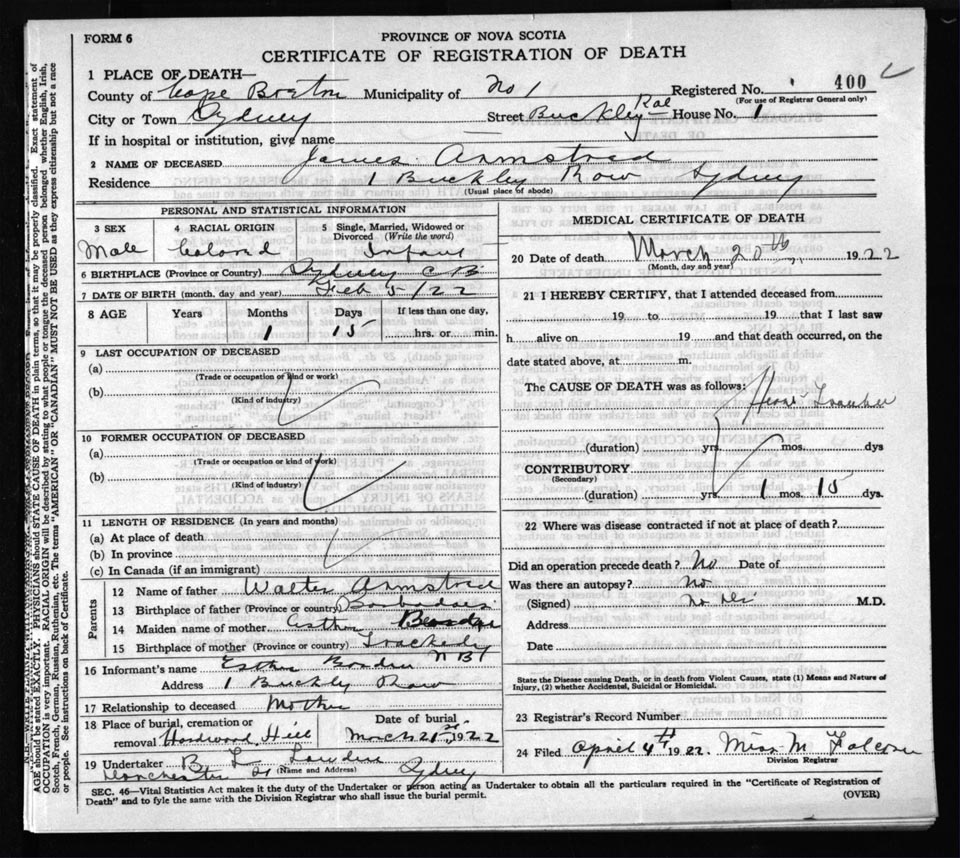 FORM 6
PROVINCE OF NOVA SCOTIA
CERTIFICATE OF REGISTRATION OF DEATH
1 PLACE OF DEATH—
County of Cape Breton Municipality of No 1 Registered No. 400
(For use of Registrar General only)
City or Town Sydney Street Buckley House No. 1
If in hospital or institution, give name
2 NAME OF DECEASED James Armstred
Residence 1 Buckley Row Sydney
(Usual place of abode)
PERSONAL AND STATISTICAL INFORMATION
3 SEX 4 RACIAL ORIGIN 5 Single, Married, Widowed or Divorced (Write the word)
Male Colored Infant
6 BIRTHPLACE (Province or Country) Sydney C B
7 DATE OF BIRTH (month, day and year) Feb 5/22
8 AGE Years Months Days If less than one day,
1 15 hrs. or min.
9 LAST OCCUPATION OF DECEASED
(a)
(Trade or occupation or kind or work)
(b)
(Kind of industry)
10 FORMER OCCUPATION OF DECEASED
(a)
(Trade or occupation or kind of work)
(b)
(Kind of industry)
11 LENGTH OF RESIDENCE (In years and months)
(a) At place of death
(b) In province
(c) In Canada (if an immigrant)
Parents
12 Name of father Walter Armstred
13 Birthplace of father (Province or country) Barbadoes
14 Maiden name of mother Esther
15 Birthplace of mother (Province or country) Trackedy N B
16 Informant's name Esther
Address 1 Buckly Row
17 Relationship to deceased Mother
18 Place of burial, cremation or removal Hardwood Hill
Date of burial March 21st, 1922
19 Undertaker B L
(Name and Address) Dorchester St Sydney
MEDICAL CERTIFICATE OF DEATH
20 Date of death March 20th, 1922
(Month, day and year)
21 I HEREBY CERTIFY, that I attended deceased from
19 to 19 that I last saw
h alive on 19 and that death occurred, on the
date stated above, at m.
The CAUSE OF DEATH was as follows:
Heart Trouble
(duration) yrs. mos. dys
CONTRIBUTORY
(Secondary)
(duration) yrs. 1 mos. 15 dys.
22 Where was disease contracted if not at place of death?
Did an operation precede death? No Date of
Was there an autopsy? No
(Signed) no Dr M.D.
Address
Date
State the Disease causing Death, or in death from Violent Causes, state (1) Means and Nature of
Injury, (2) whether Accidental, Suicidal or Homicidal.
23 Registrar's Record Number
24 Filed April 4th 1922. Miss M Falconer
Division Registrar
SEC. 46—Vital Statistics Act makes it the duty of the Undertaker or person acting as Undertaker to obtain all the particulars required in the "Certificate of Registration of
Death" and to fyle the same with the Division Registrar who shall issue the burial permit.
(OVER)
AGE should be stated EXACTLY. PHYSICIANS should STATE CAUSE OF DEATH in plain terms, so that it may be properly classified. Exact statement of
OCCUPATION is very important. RACIAL ORIGIN will be described by stating to what people or tongue the deceased person belonged whether English, Irish,
Scotch, French, German, Russian, Ruthenian, etc. The terms "AMERICAN" OR "CANADIAN" MUST NOT BE USED as they express citizenship but not a race
or people. See instructions on back of Certificate.